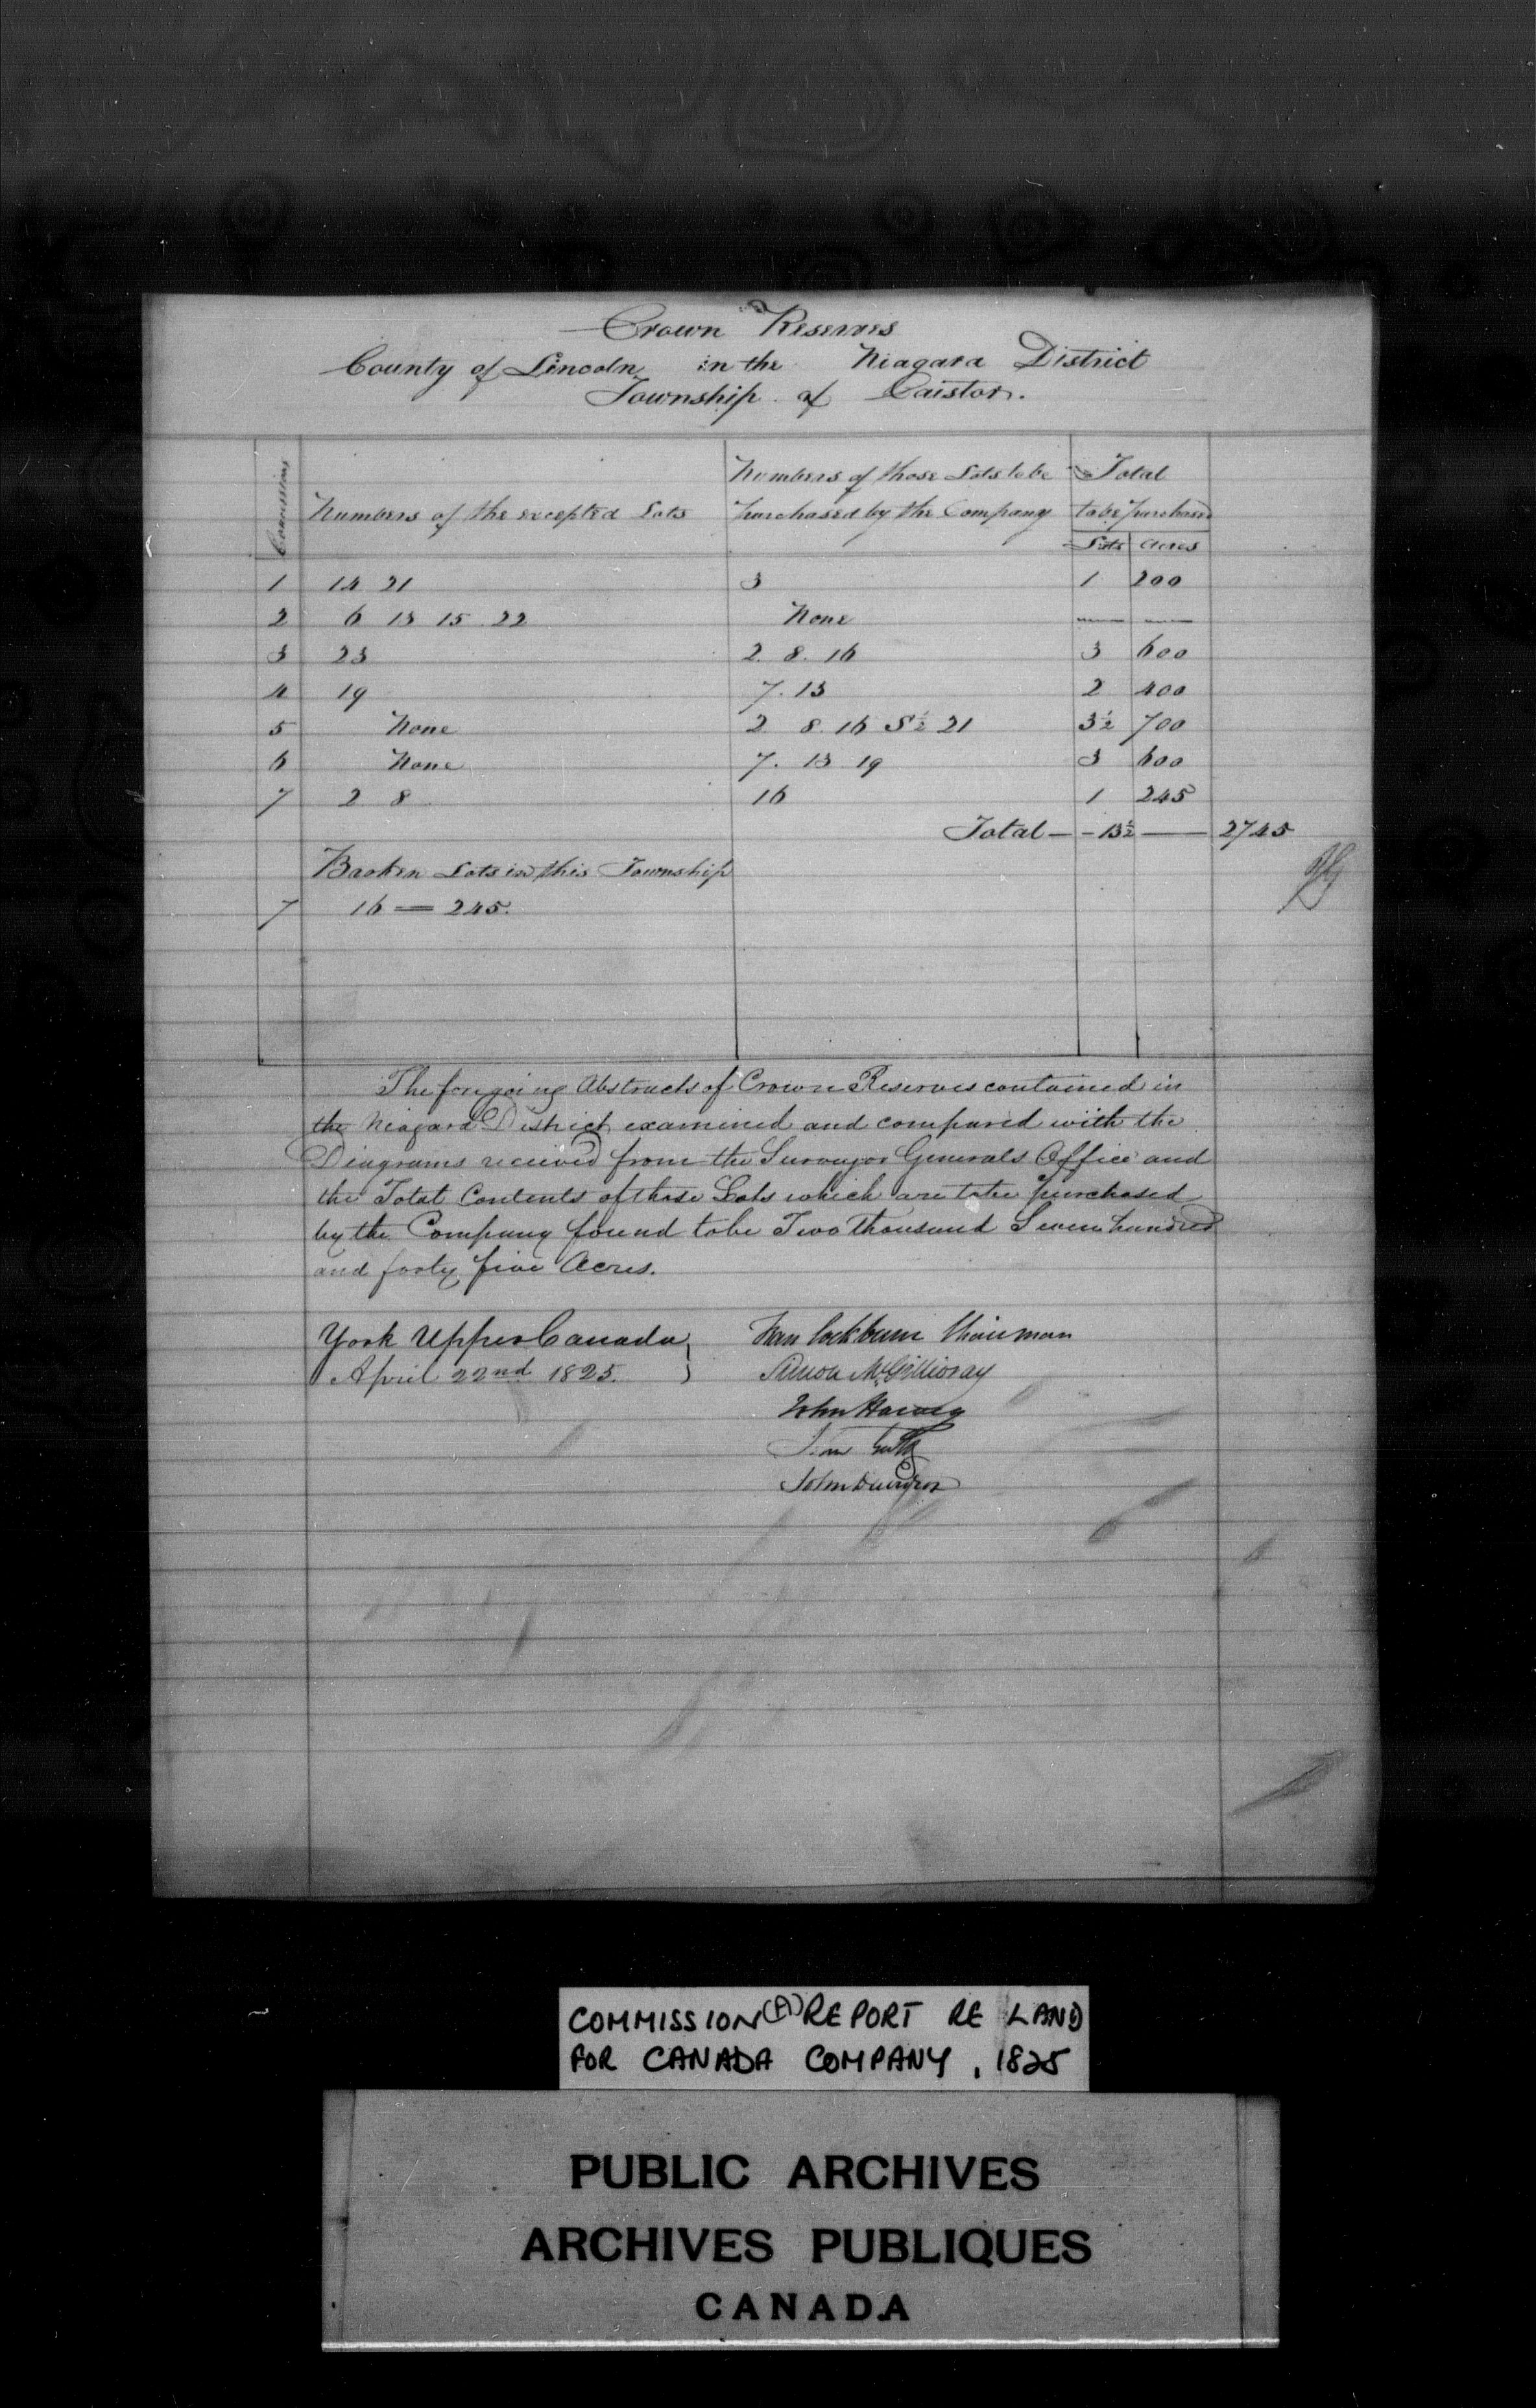 Crown Reserves
County of Lincoln in the Niagara District
Township of Caistor.
Concessions
Numbers of the excepted Lots
Numbers of those Lots to be purchased by the Company
Total to be purchased
Lots Acres
1 14 21 3 1 200
2 6 13 15 22 None — —
3 23 2. 8. 16 3 600
4 19 7. 13 2 400
5 None 2 8. 16 S½ 21 3½ 700
6 None 7. 13 19 3 600
7 2 8 16 1 245
Total — - 13½ — 2745
Broken Lots in this Township
7 16 — 245.
The foregoing Abstracts of Crown Reserves contained in
the Niagara District examined and compared with the
Diagrams received from the Surveyor Generals Office and
the Total Contents of those Lots which are to be purchased
by the Company found to be Two thousand Seven hundred
and forty five Acres.
York Upper Canada
April 22nd 1825.
Cockburn Chairman
Simon McGillivray
John Harvey
John Galt
John Davidson
COMMISSION (A) REPORT RE LAND
FOR CANADA COMPANY, 1825
PUBLIC ARCHIVES
ARCHIVES PUBLIQUES
CANADA